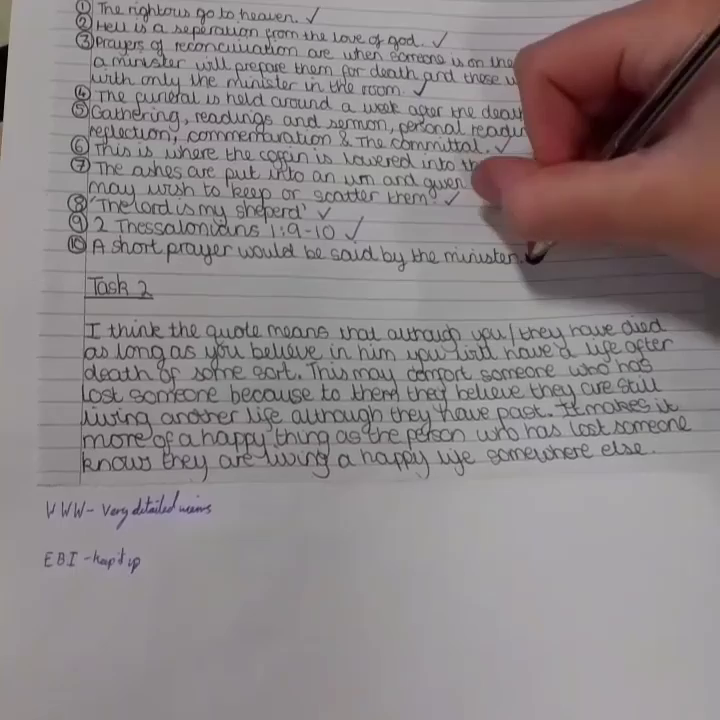 ① The righteous go to heaven. ✓
② Hell is a seperation from the love of god. ✓
③ Prayers of reconciliation are when someone is on the
a minister will prepare them for death and these w
with only the minister in the room. ✓
④ The funeral is held around a week after the death
⑤ Gathering, readings and sermon, personal readin
reflection, commendaration & The committal. ✓
⑥ This is where the coffin is lowered into th
⑦ The ashes are put into an urn and given
may wish to keep or scatter them. ✓
⑧ 'The lord is my sheperd' ✓
⑨ 2 Thessalonians 1:9-10 ✓
⑩ A short prayer would be said by the minister.
Task 2
I think the quote means that although you/they have died
as long as you believe in him you will have a life after
death of some sort. This may comfort someone who has
lost someone because to them they believe they are still
living another life although they have past. It makes it
more of a happy thing as the person who has lost someone
knows they are living a happy life somewhere else.
WWW- Very detailed
EBI - keep it up